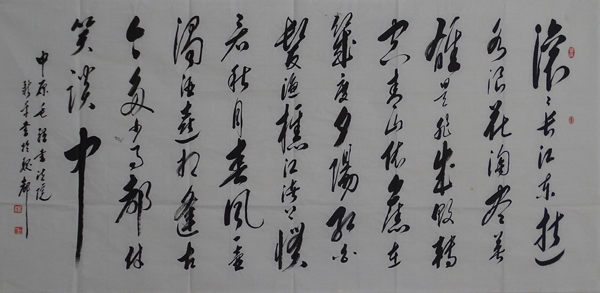 滚滚长江东逝
水浪花淘尽英
雄是非成败转
空青山依旧在
几度夕陽红白
髮渔樵江渚上惯
看秋月春风一壶
浊酒喜相逢古
今多少事都付
笑谈中
中原毛体书法院
书于殷都